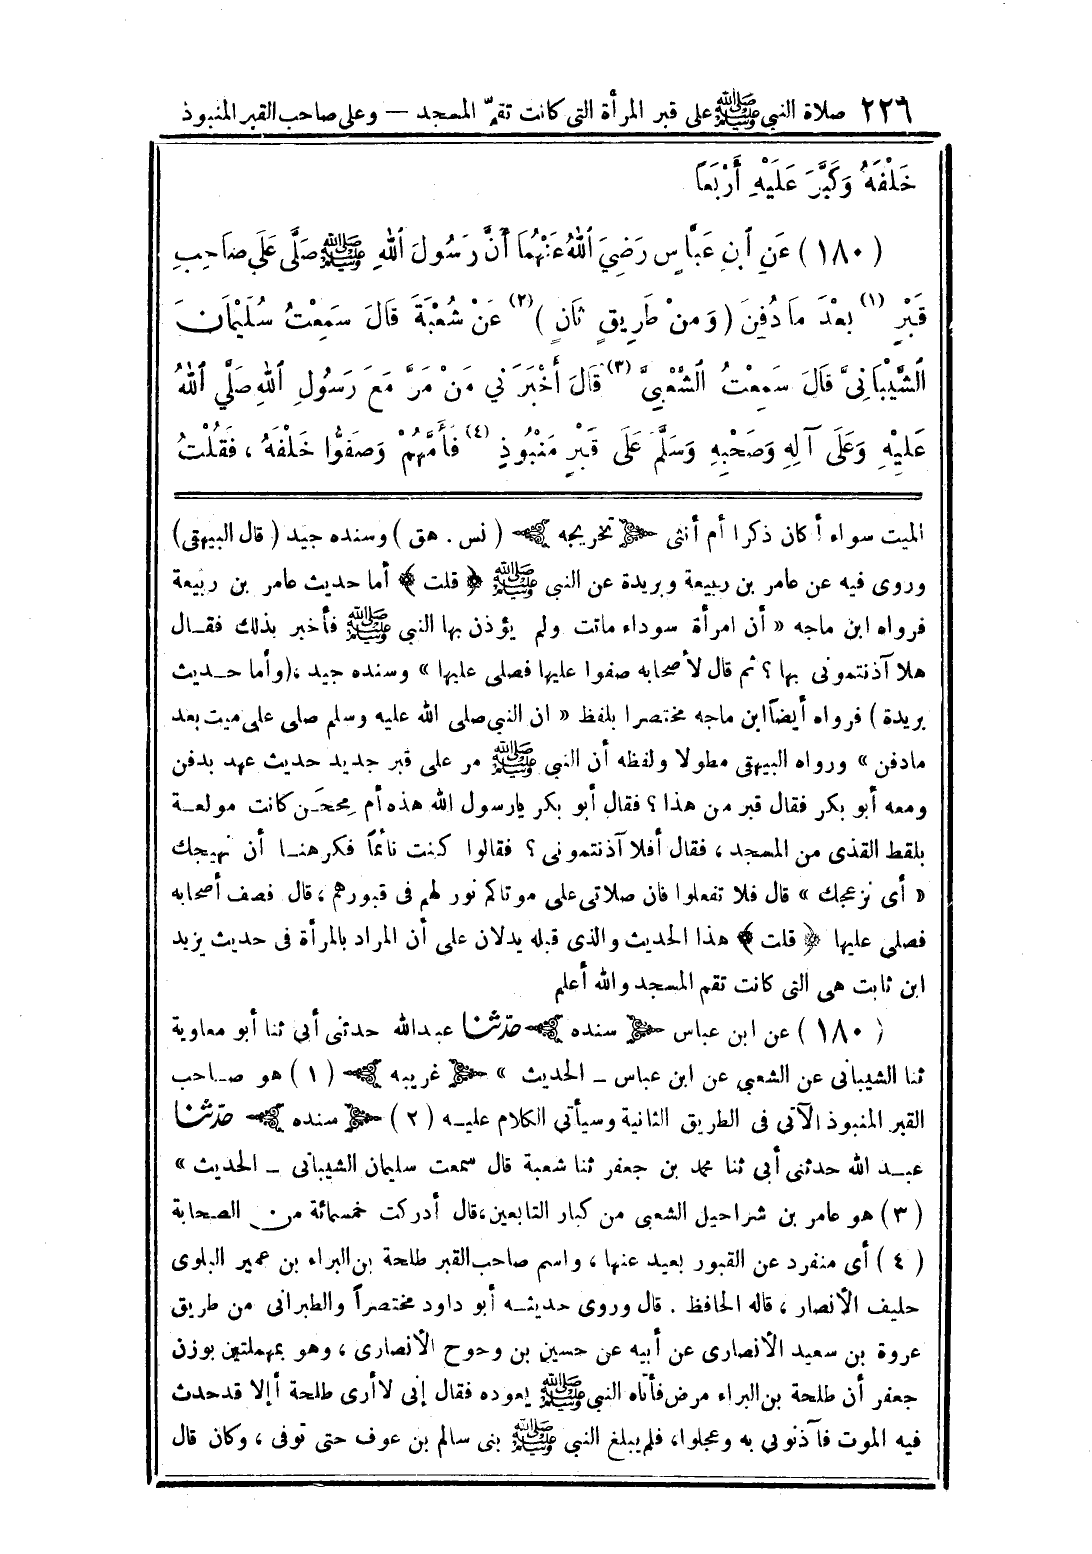 ٢٢٦ صلاة النبي ﷺ على قبر المرأة التى كانت تقمّ المسجد — وعلى صاحب القبر المنبوذ
خَلْفَهُ وَكَبَّرَ عَلَيْهِ أَرْبَعًا
(١٨٠) عَنِ ٱبْنِ عَبَّاسٍ رَضِيَ ٱللهُ عَنْهُمَا أَنَّ رَسُولَ ٱللهِ ﷺ صَلَّى عَلَى صَاحِبِ
قَبْرٍ (١) بَعْدَ مَا دُفِنَ (وَمِنْ طَرِيقٍ ثَانٍ) (٢) عَنْ شُعْبَةَ قَالَ سَمِعْتُ سُلَيْمَانَ
ٱلشَّيْبَانِيَّ قَالَ سَمِعْتُ ٱلشَّعْبِيَّ (٣) قَالَ أَخْبَرَنِي مَنْ مَرَّ مَعَ رَسُولِ ٱللهِ صَلَّي ٱللهُ
عَلَيْهِ وَعَلَى آلِهِ وَصَحْبِهِ وَسَلَّمَ عَلَى قَبْرٍ مَنْبُوذٍ (٤) فَأَمَّهُمْ وَصَفُّوا خَلْفَهُ ، فَقُلْتُ
الميت سواء أكان ذكرا أم أنثى ﴿ تخريجه ﴾ (نس . هق) وسنده جيد (قال البيهقى)
وروى فيه عن عامر بن ربيعة وبريدة عن النبى ﷺ ﴿ قلت ﴾ أما حديث عامر بن ربيعة
فرواه ابن ماجه « أن امرأة سوداء ماتت ولم يؤذن بها النبى ﷺ فأخبر بذلك فقـال
هلا آذنتمونى بها ؟ ثم قال لأصحابه صفوا عليها فصلى عليها » وسنده جيد ،(وأما حـديث
بريدة) فرواه أيضاً ابن ماجه مختصرا بلفظ « ان النبى صلى الله عليه وسلم صلى على ميت بعد
مادفن » ورواه البيهقى مطولا ولفظه أن النبى ﷺ مر على قبر جديد حديث عهد بدفن
ومعه أبو بكر فقال قبر من هذا ؟ فقال أبو بكر يارسول الله هذه أم مِحجَن كانت مولعـة
بلقط القذى من المسجد ، فقال أفلا آذنتمونى ؟ فقالوا كنت نائمًا فكرهنـا أن نهيجك
« أى نزعجك » قال فلا تفعلوا فان صلاتى على موتاكم نور لهم فى قبورهم ، قال فصف أصحابه
فصلى عليها ﴿ قلت ﴾ هذا الحديث والذى قبله يدلان على أن المراد بالمرأة فى حديث يزيد
ابن ثابت هى التى كانت تقم المسجد والله أعلم
(١٨٠) عن ابن عباس ﴿ سنده ﴾ حدّثنا عبدالله حدثنى أبى ثنا أبو معاوية
ثنا الشيبانى عن الشعبي عن ابن عباس ـ الحديث » ﴿ غريبه ﴾ (١) هو صـاحب
القبر المنبوذ الآتى فى الطريق الثانية وسيأتى الكلام عليـه (٢) ﴿ سنده ﴾ حدّثنا
عبـد الله حدثنى أبى ثنا محمد بن جعفر ثنا شعبة قال سمعت سليمان الشيبانى ـ الحديث »
(٣) هو عامر بن شراحيل الشعبى من كبار التابعين،قال أدركت خمسمائة من الصحابة
(٤) أى منفرد عن القبور بعيد عنها ، واسم صاحب القبر طلحة بن البراء بن عمير البلوى
حليف الأنصار ، قاله الحافظ . قال وروى حديثـه أبو داود مختصراً والطبرانى من طريق
عروة بن سعيد الأنصارى عن أبيه عن حسين بن وحوح الأنصارى ، وهو بمهملتين بوزن
جعفر أن طلحة بن البراء مرض فأتاه النبي ﷺ يعوده فقال إنى لاأرى طلحة ألا قد حدث
فيه الموت فآذنونى به وعجلوا، فلم يبلغ النبى ﷺ بنى سالم بن عوف حتى توفى ، وكان قال